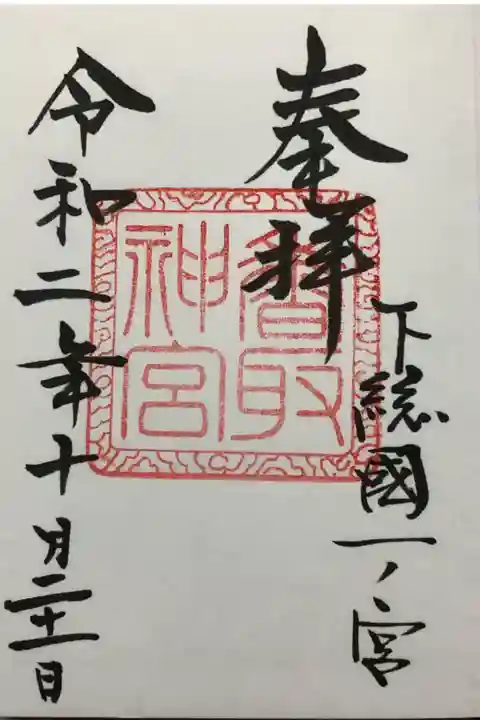 奉拝
下総國一ノ宮
香取
神宮
令和二年十月二十一日